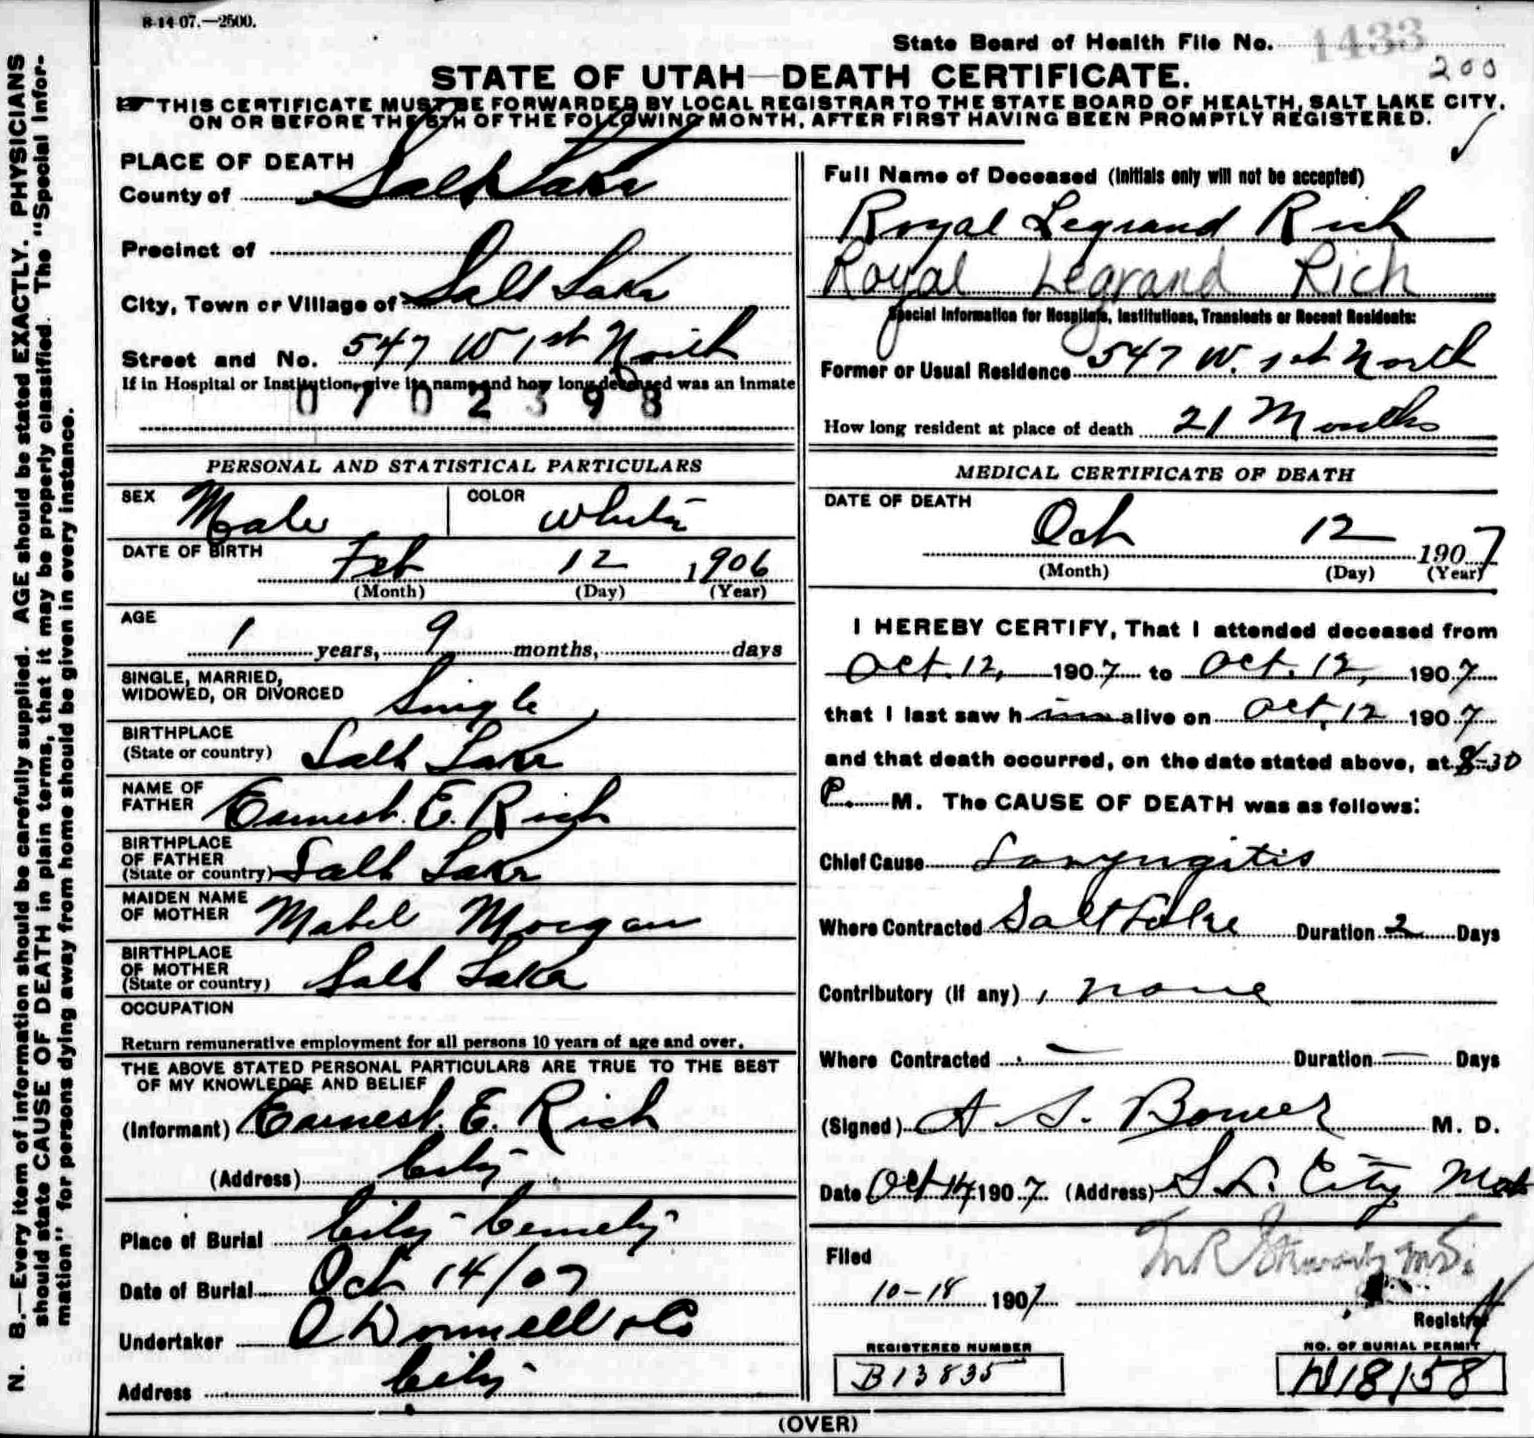 8-14-07.—2500.
State Board of Health File No. 1433
200
STATE OF UTAH—DEATH CERTIFICATE.
THIS CERTIFICATE MUST BE FORWARDED BY LOCAL REGISTRAR TO THE STATE BOARD OF HEALTH, SALT LAKE CITY,
ON OR BEFORE THE 5TH OF THE FOLLOWING MONTH, AFTER FIRST HAVING BEEN PROMPTLY REGISTERED.
PLACE OF DEATH
County of Salt Lake
Precinct of
City, Town or Village of Salt Lake
Street and No. 547 W 1st North
If in Hospital or Institution, give its name and how long deceased was an inmate
0702398
PERSONAL AND STATISTICAL PARTICULARS
SEX Male COLOR White
DATE OF BIRTH Feb 12 1906
(Month) (Day) (Year)
AGE
1 years, 9 months, days
SINGLE, MARRIED,
WIDOWED, OR DIVORCED Single
BIRTHPLACE
(State or country) Salt Lake
NAME OF
FATHER Earnest E. Rich
BIRTHPLACE
OF FATHER
(State or country) Salt Lake
MAIDEN NAME
OF MOTHER Mabel Morgan
BIRTHPLACE
OF MOTHER
(State or country) Salt Lake
OCCUPATION
Return remunerative employment for all persons 10 years of age and over.
THE ABOVE STATED PERSONAL PARTICULARS ARE TRUE TO THE BEST
OF MY KNOWLEDGE AND BELIEF
(Informant) Earnest E. Rich
(Address) City
Place of Burial City Cemety
Date of Burial Oct 14/07
Undertaker O Donnell & Co
Address City
Full Name of Deceased (Initials only will not be accepted)
Royal Legrand Rich
Royal Legrand Rich
Special Information for Hospitals, Institutions, Transients or Recent Residents:
Former or Usual Residence 547 W. 1st North
How long resident at place of death 21 Months
MEDICAL CERTIFICATE OF DEATH
DATE OF DEATH
Oct 12 1907
(Month) (Day) (Year)
I HEREBY CERTIFY, That I attended deceased from
Oct. 12, 1907 to Oct. 12, 1907
that I last saw him alive on Oct. 12 1907
and that death occurred, on the date stated above, at 8-30
P. M. The CAUSE OF DEATH was as follows:
Chief Cause Laryngitis
Where Contracted Salt Lake Duration 2 Days
Contributory (if any) none
Where Contracted — Duration — Days
(Signed) A S. Bower M. D.
Date Oct 14, 1907. (Address) S L. City
Filed
10-18 1907
Registrar
REGISTERED NUMBER
B13835
NO. OF BURIAL PERMIT
18158
(OVER)
N. B.—Every item of information should be carefully supplied. AGE should be stated EXACTLY. PHYSICIANS
should state CAUSE OF DEATH in plain terms, that it may be properly classified. The "Special Infor-
mation" for persons dying away from home should be given in every instance.